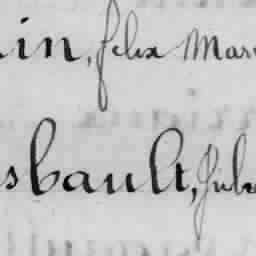 in, felix Mar
sbault, Jul